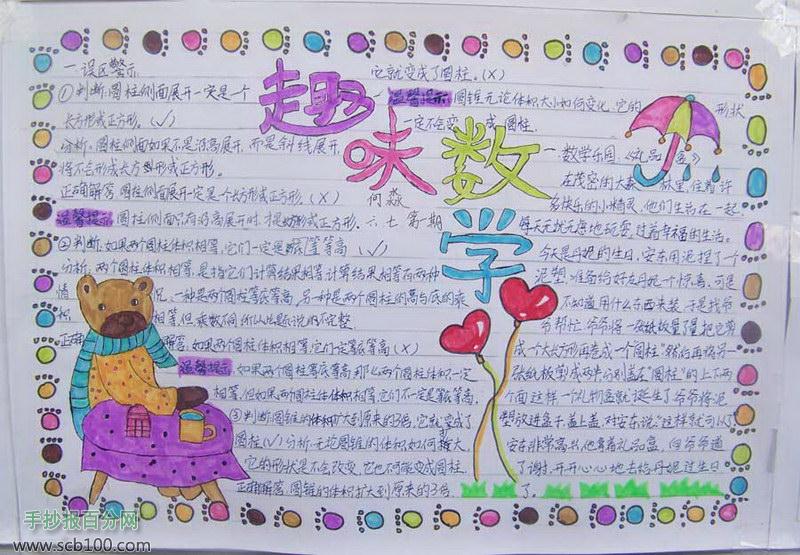 趣味数学
何淼
六.七第一期
一.误区警示
①判断:圆柱侧面展开一定是个
长方形或正方形。(✓)
分析:圆柱侧面如果不是沿高展开,而是斜线展开,
将不会形成长方型形或正方形。
正确解答:圆柱侧面展开一定是个长方形或正方形。(X)
温馨提示:圆柱侧面只有沿高展开时,才是长方形或正方形。
②判断:如果两个圆柱体积相等,它们一定是等底等高(✓)
分析:两个圆柱体积相等,是指它们计算结果相等,计算结果相等有两种
情况,一种是两个圆柱等底等高,另一种是两个圆柱的高与底的乘
积相等,但乘数不同,所以此题说的不完整.
正确解答:如果两个圆柱体积相等,它们一定等底等高(X)
温馨提示:如果两个圆柱等底等高,那么两个圆柱体积一定
相等,但如果两个圆柱体体积相等,它们不一定是等底等高.
③判断:圆锥的体积扩大到原来的3倍,它就变成了
圆柱(✓)分析:无论圆锥的体积如何扩大,
它的形状是不会改变,它也不可能变成圆柱.
正确解答:圆锥的体积扩大到原来的3倍,
它就变成了圆柱。(X)
温馨提示:圆锥无论体积大小如何变化,它的形状
一定不会变成圆柱.
一.数学乐园:《礼品盒》
在茂密的大森林里,住着许
多快乐的小精灵,他们生活在一起,
每天无忧无虑地玩耍,过着幸福的生活。
今天是丹妮的生日,安东用泥捏了一个
泥塑,准备给好友丹妮一个惊喜,可是
不知道用什么东西来装,于是找爷
爷帮忙,爷爷将一张纸板量了量把它剪
成一个大长方形再卷成一个圆柱"然后再将另一
张纸板剪成两半分别盖在"圆柱"的上下两
个面,这样一个礼物盒就诞生了爷爷将泥
塑放进盒子盖上盖,对安东说:"这样就可以了
安东非常高兴,他拿着礼品盒,向爷爷道
了谢,开开心心地去给丹妮过生日
了。
手抄报百分网
www.scb100.com